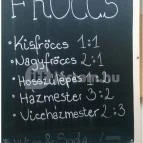 FRÖCCS
• Kisfröccs 1:1
• Nagyfröccs 2:1
• Hosszúlépés 1:2
• Házmester 3:2
• Viceházmester 2:3